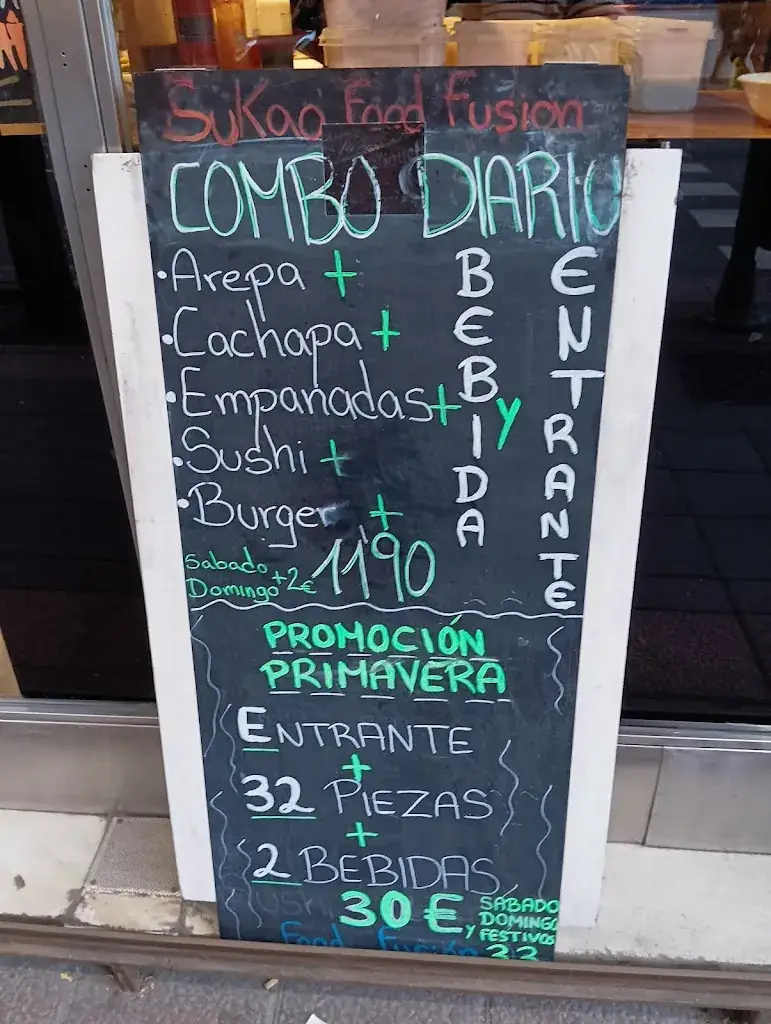 SuKao Food Fusion
COMBO DIARIO
• Arepa +
• Cachapa +
• Empanadas +
• Sushi +
• Burger +
BEBIDA
y
ENTRANTE
Sabado
Domingo +2€
11'90
PROMOCIÓN
PRIMAVERA
ENTRANTE
+
32 PIEZAS
+
2 BEBIDAS
30€
SABADO
DOMINGO
y FESTIVOS
33
Food Fusión